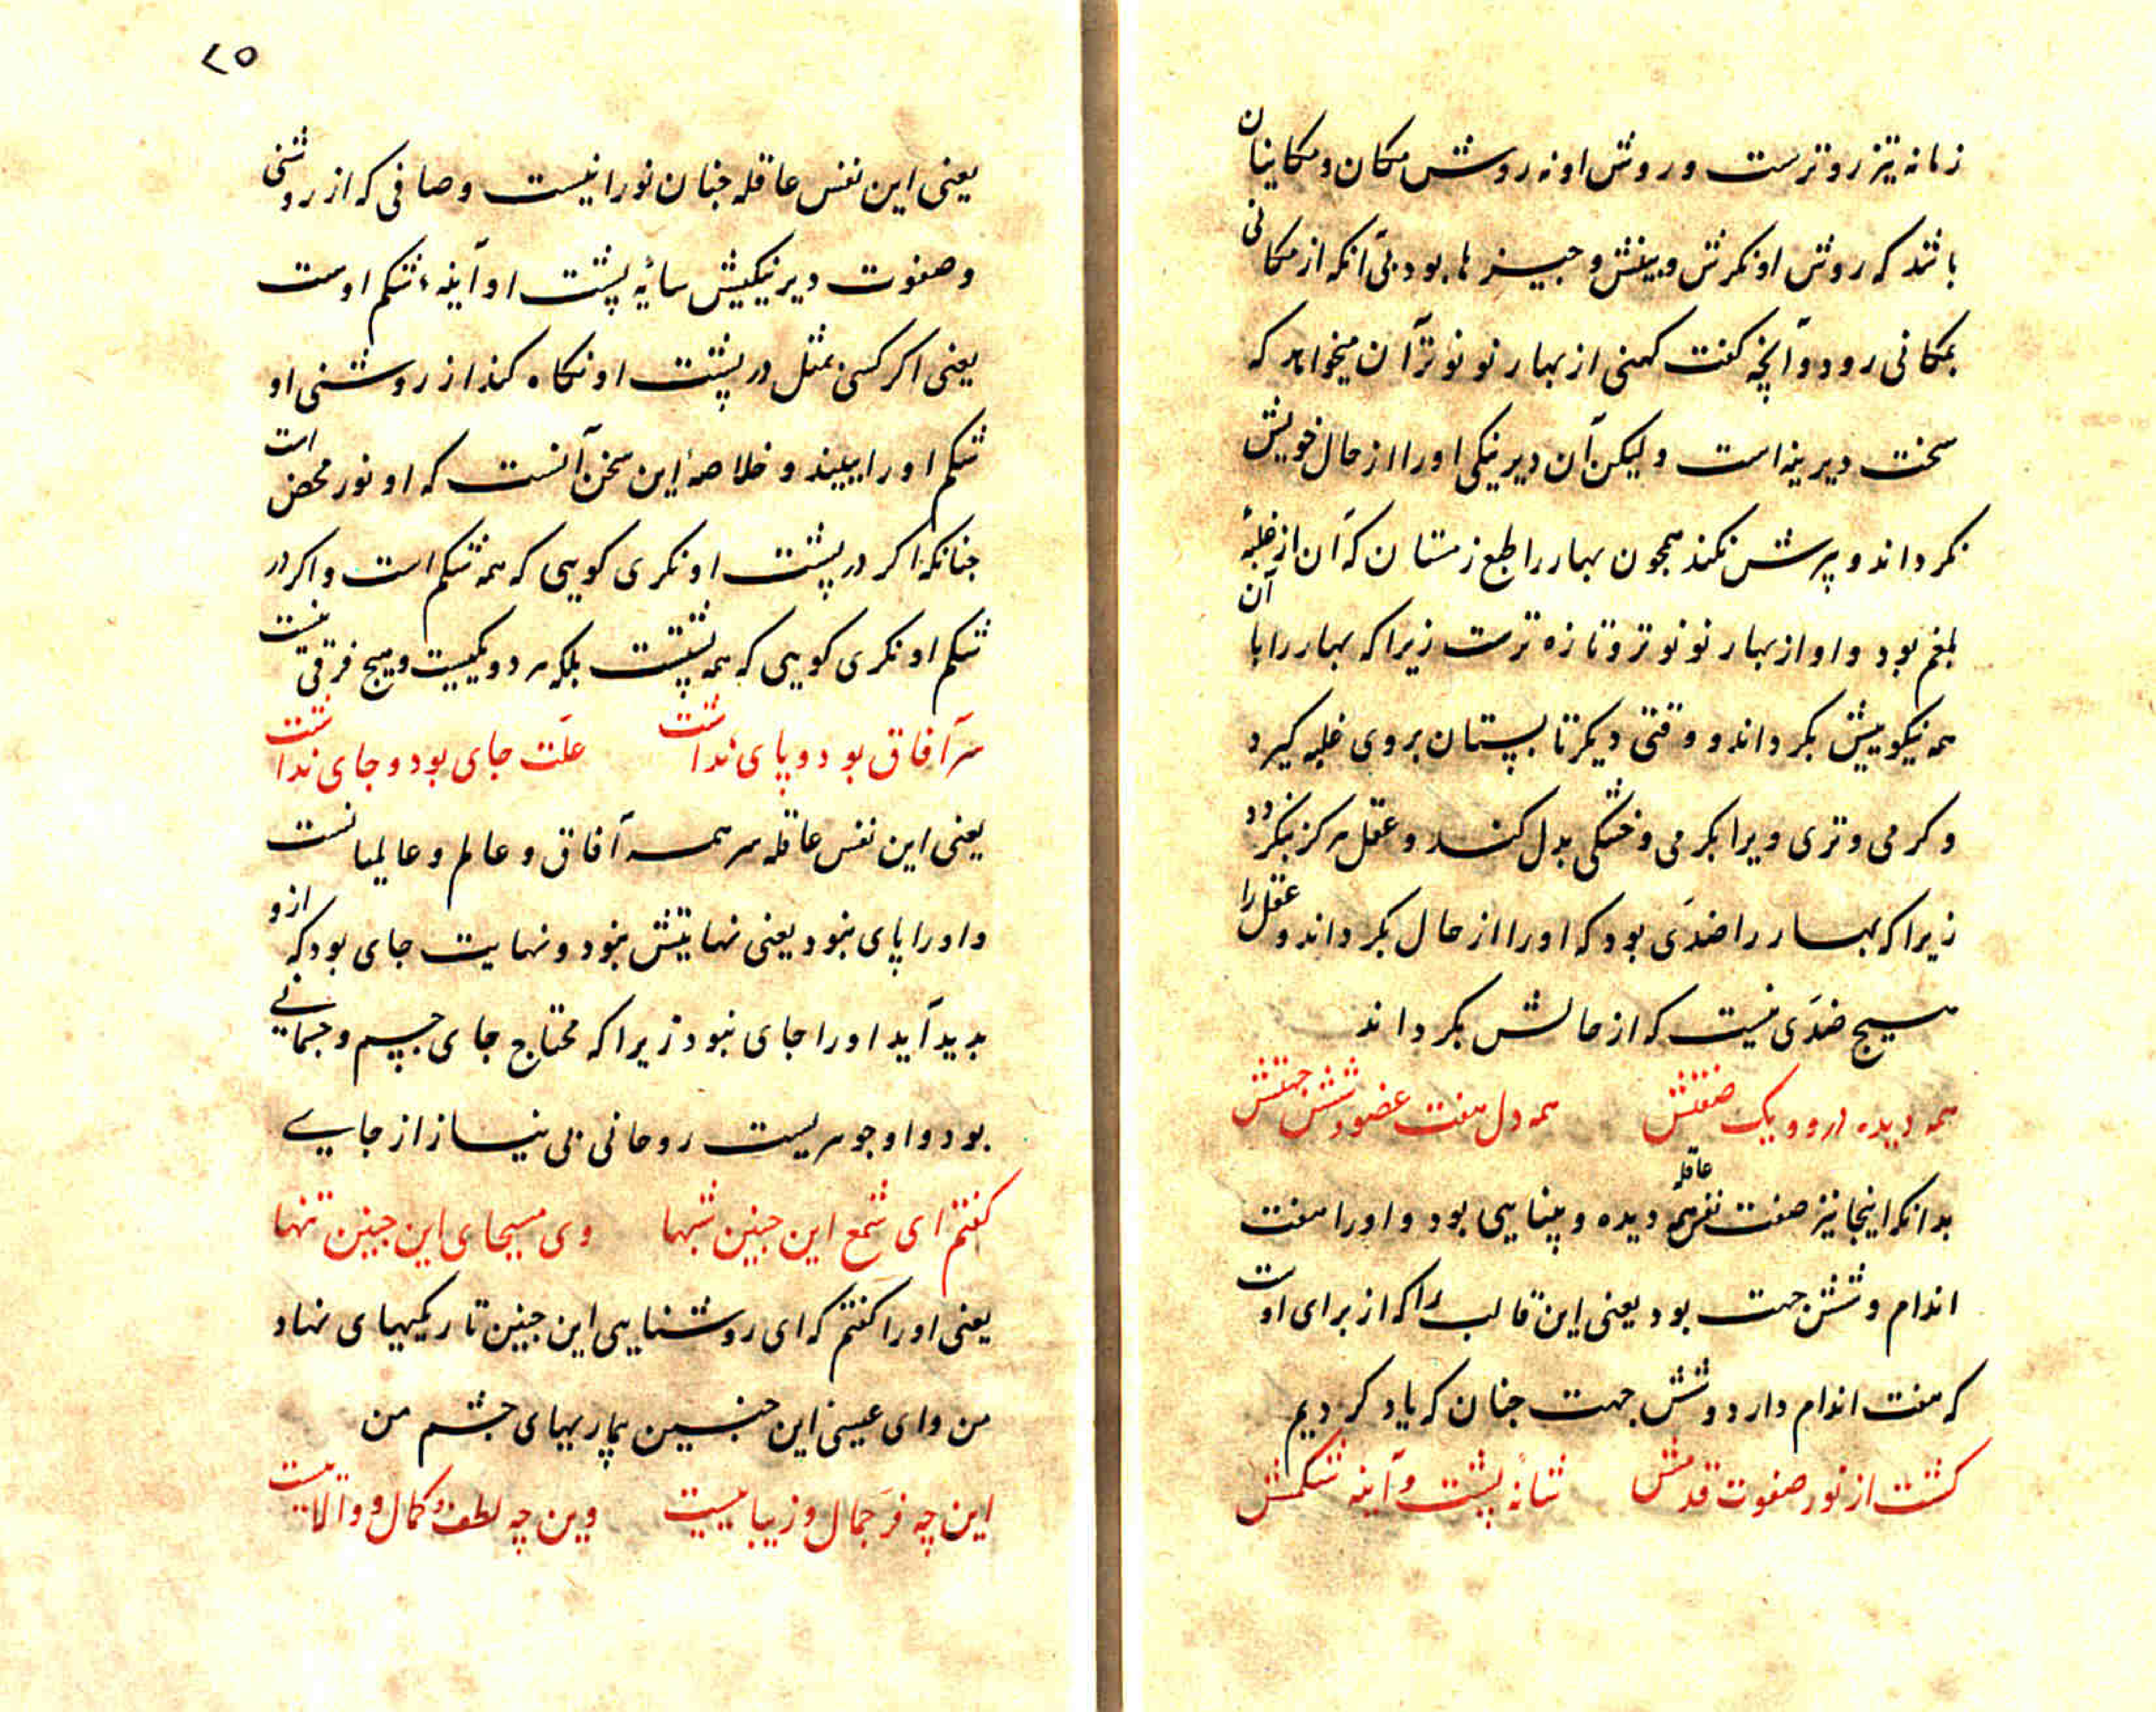 زمانه تیز روترست و روش او نه روش مکان و مکانیان
باشد که روش او نکرش و بینش و چیزها بود بی آنکه از مکانی
بمکانی رود و آنچه کفت کهنی از بهار نو نوتر آن میخواهد که
سخت دیرینه است ولیکن آن دیرینکی اورا از حال خویش
نکرداند و پرش نکند همچون بهار را طبع زمستان که آن از غلبهٔ
بلغم بود و او از بهار نو نوتر و تازه ترست زیرا که بهار را با آن
همه نیکوییش بکرداند و وقتی دیکر تابستان بروی غلبه کیرد
و کرمی و تری ویرا بکرمی و خشکی بدل کند و عقل هرکز نکردد
زیرا که بهار را ضدّی بود که اورا از حال بکرداند و عقل را
هیچ ضدّی نیست که از حالش بکرداند
همه دیده درو و یک صفتش همه دل هفت عضو و شش جهتش
بدانکه اینجا نیز صفت نفس عاقله همه دیده و بینایی بود و اورا هفت
اندام و شش جهت بود یعنی این قالب را که از برای اوست
که هفت اندام دارد و شش جهت چنان که یاد کردیم
کشت از نور صفوت قدمش شانهٔ پشت و آینه شکمش
۲۵
یعنی این نفس عاقله چنان نورانیست و صافی که از روشنی
و صفوت دیرینکیش سایهٔ پشت او آینهٔ شکم اوست
یعنی اکر کسی بمثل در پشت او نکاه کند از روشنی او
شکم اورا ببیند و خلاصهٔ این سخن آنست که او نور محض است
چنانکه اکر در پشت او نکری کویی که همه شکم است و اکر در
شکم او نکری کویی که همه پشتست بلکه هر دو یکیست و هیچ فرقی نیست
سر آفاق بود و پای نداشت علّت جای بود و جای نداشت
یعنی این نفس عاقله سر همه آفاق و عالم و عالمیانست
و اورا پای نبود یعنی نهایتش نبود و نهایت جای بود که ازو
بدید آید اورا جای نبود زیرا که محتاج جای جسم و جسمانی
بود و او جوهریست روحانی بی نیاز از جایی
کفتم ای شمع این چنین شبها وی مسیحای این چنین تبها
یعنی اورا کفتم که ای روشنایی این چنین تاریکیهای نهاد
من و ای عیسی این چنین بیماریهای جشم من
این چه فرّ جمال و زیباییست وین چه لطف و کمال و والاییست